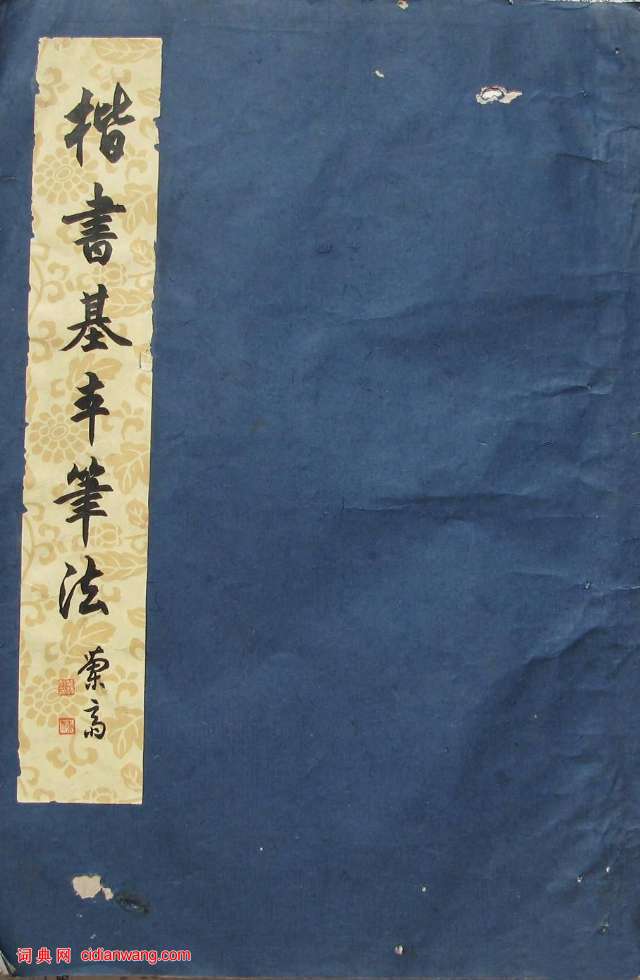 楷書基本筆法
词典网 cidianwang.com